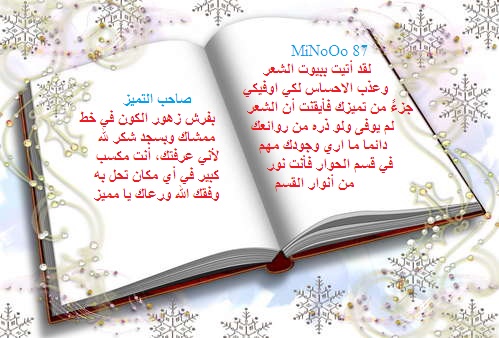 MiNoOo 87
لقد أتيت ببيوت الشعر
وعذب الاحساس لكي اوفيكي
جزءً من تميزك فأيقنت أن الشعر
لم يوفى ولو ذره من روائعك
دائما ما اري وجودك مهم
في قسم الحوار فأنت نور
من أنوار القسم
صاحب التميز
بفرش زهور الكون في خط
ممشاك وبسجد شكر لله
لأني عرفتك، أنت مكسب
كبير في أي مكان تحل به
وفقك الله ورعاك يا مميز